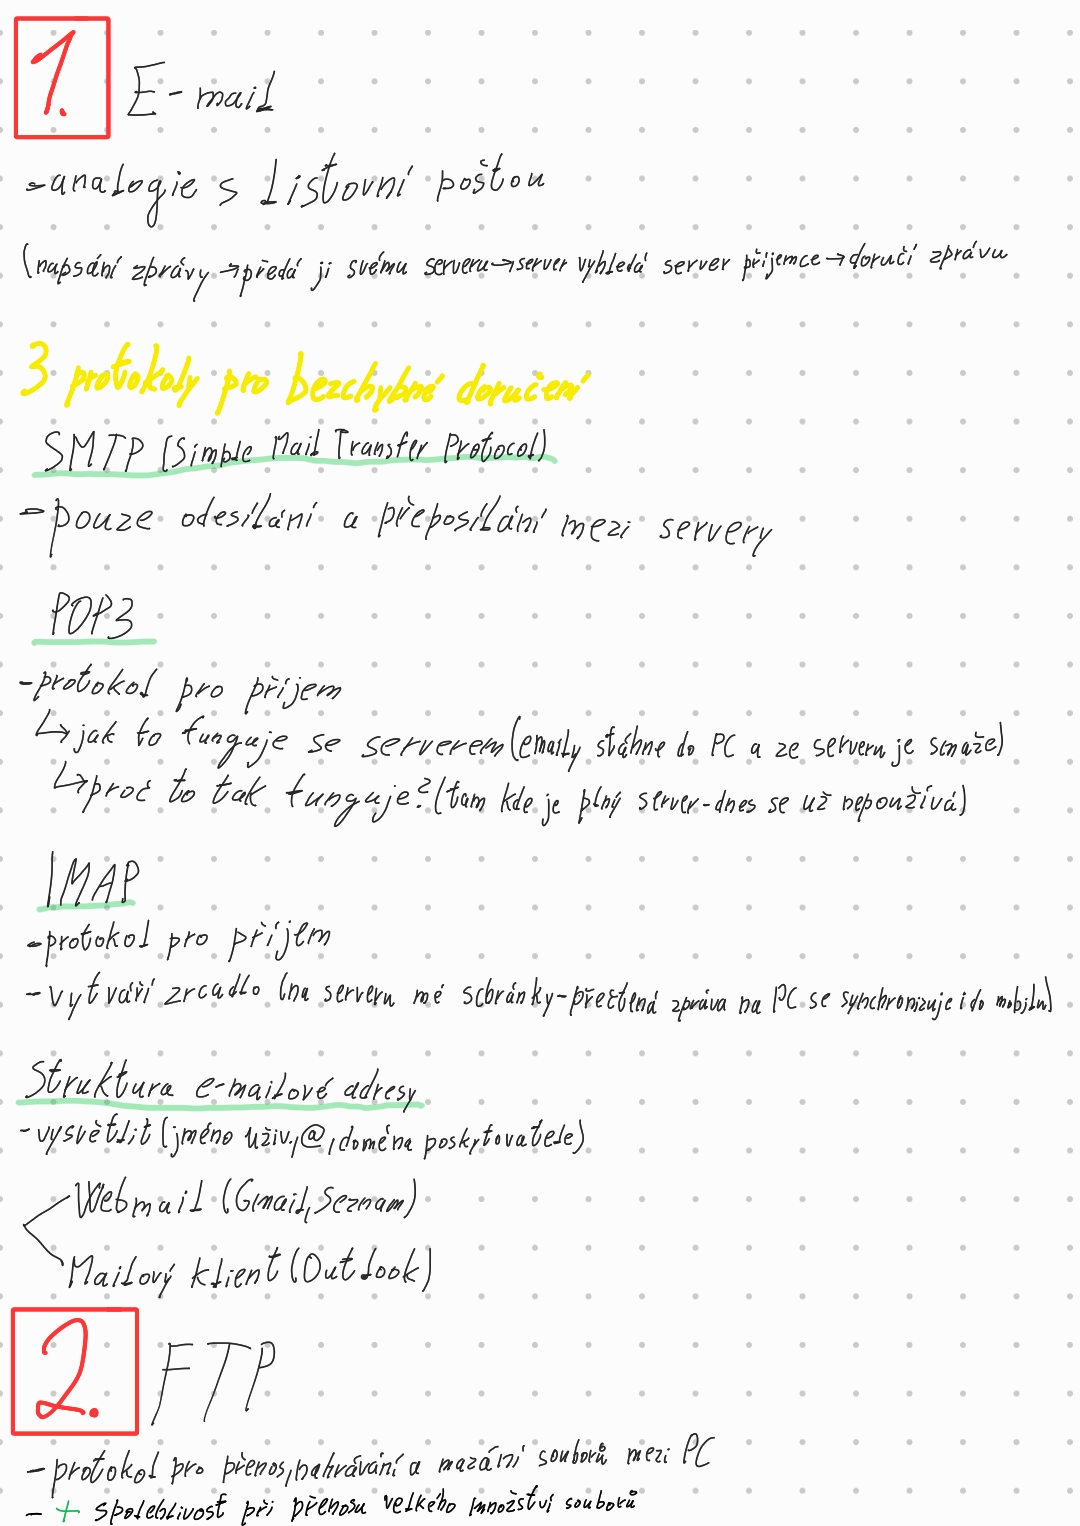 1. E-mail
-analogie s listovní poštou
(napsání zprávy → předá ji svému serveru → server vyhledá server příjemce → doručí zprávu
3 protokoly pro bezchybné doručení
SMTP (Simple Mail Transfer Protocol)
-pouze odesílání a přeposílání mezi servery
POP3
-protokol pro příjem
↳ jak to funguje se serverem (emaily stáhne do PC a ze serveru je smaže)
↳ proč to tak funguje? (tam kde je plný server-dnes se už nepoužívá)
IMAP
-protokol pro příjem
-vytváří zrcadlo (na serveru mé schránky-přečtená zpráva na PC se synchronizuje i do mobilu)
Struktura e-mailové adresy
-vysvětlit (jméno uživ., @, doména poskytovatele)
Webmail (Gmail, Seznam)
Mailový klient (Outlook)
2. FTP
-protokol pro přenos, nahrávání a mazání souborů mezi PC
- + spolehlivost při přenosu velkého množství souborů